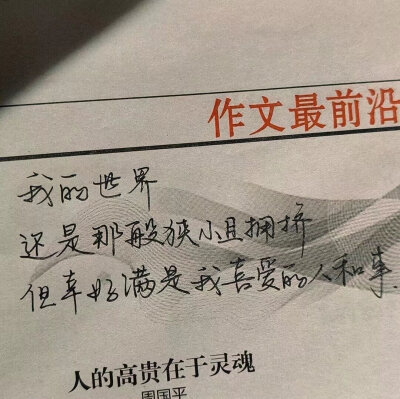 作文最前沿
我的世界
还是那般狭小且拥挤
但幸好满是我喜爱的人和事.
人的高贵在于灵魂
周国平